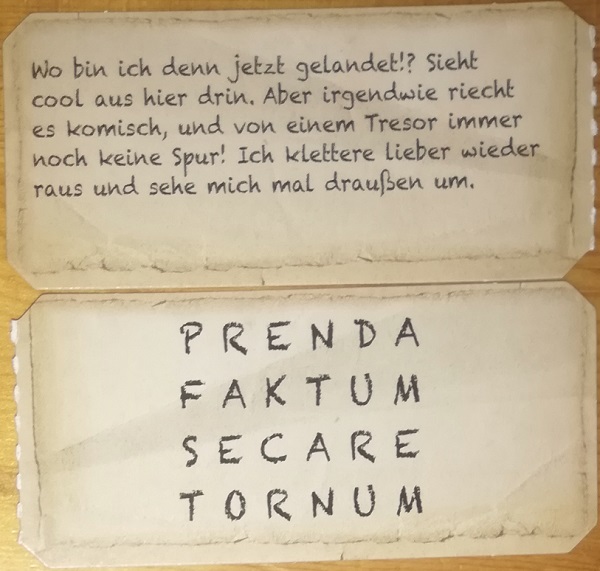 Wo bin ich denn jetzt gelandet!? Sieht
cool aus hier drin. Aber irgendwie riecht
es komisch, und von einem Tresor immer
noch keine Spur! Ich klettere lieber wieder
raus und sehe mich mal draußen um.
PRENDA
FAKTUM
SECARE
TORNUM